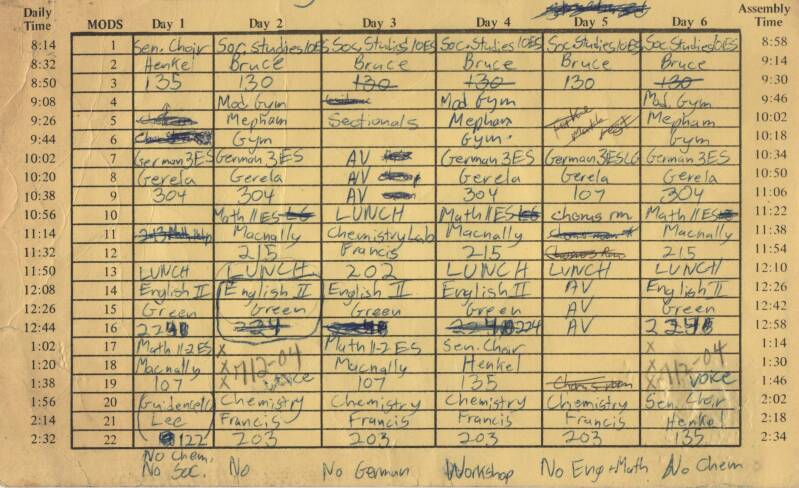 Daily Time MODS Day 1 Day 2 Day 3 Day 4 Day 5 Day 6 Assembly Time
8:14 1 Sen. Choir Soc. Studies 10ES Soc. Studies 10ES Soc. Studies 10ES Soc. Studies 10ES Soc. Studies 10ES 8:58
8:32 2 Henkel Bruce Bruce Bruce Bruce Bruce 9:14
8:50 3 135 130 130 130 130 130 9:30
9:08 4 Mod. Gym Mod Gym Mod. Gym 9:46
9:26 5 Mepham Sectionals Mepham Mepham 10:02
9:44 6 Gym Gym. Gym 10:18
10:02 7 German 3ES German 3ES AV German 3ES German 3ES LG German 3ES 10:34
10:20 8 Gerela Gerela AV Gerela Gerela Gerela 10:50
10:38 9 304 304 AV 304 107 304 11:06
10:56 10 Math 11ES LUNCH Math 11ES chorus rm Math 11ES 11:22
11:14 11 Macnally Chemistry Lab Macnally Macnally 11:38
11:32 12 215 Francis 215 215 11:54
11:50 13 LUNCH LUNCH 202 LUNCH LUNCH LUNCH 12:10
12:08 14 English II English II English II English II AV English II 12:26
12:26 15 Green Green Green Green AV Green 12:42
12:44 16 224 224 AV 12:58
1:02 17 Math 11-2ES X Math 11-2ES Sen. Choir X 1:14
1:20 18 Macnally X 7/12-04 Macnally Henkel X 7/12-04 1:30
1:38 19 107 X voice 107 135 Chorus room X voice 1:46
1:56 20 Chemistry Chemistry Chemistry Chemistry Sen. Choir 2:02
2:14 21 Lee Francis Francis Francis Francis Henkel 2:18
2:32 22 122 203 203 203 203 135 2:34
No Chem. No No German Workshop No Eng + Math No Chem
No Soc.